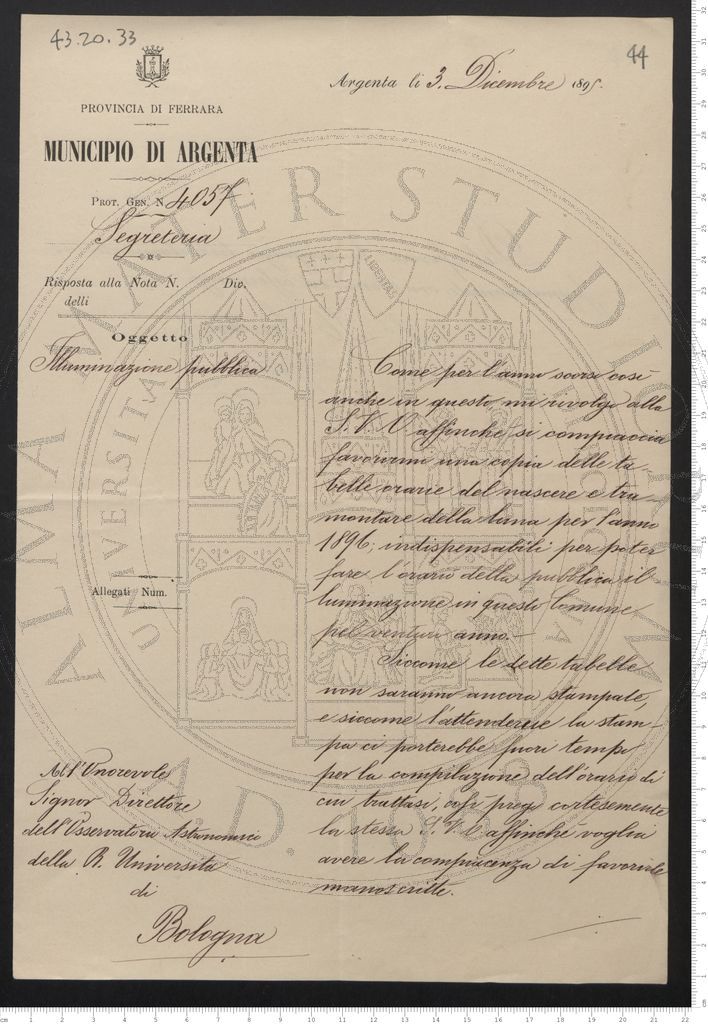 43.20.33
44
Argenta li 3. Dicembre 1895.
PROVINCIA DI FERRARA
MUNICIPIO DI ARGENTA
PROT. GEN. N. 4057
Segreteria
Risposta alla Nota N. Div.
delli
Oggetto
Illuminazione pubblica
Come per l'anno scorso così
anche in questo mi rivolgo alla
S. V. O. affinché si compiaccia
favorirmi una copia delle ta-
belle orarie del nascere e tra-
montare della luna per l'anno
1896; indispensabili per poter
fare l'orario della pubblica il
luminazione in questo Comune
pel venturo anno.-
Siccome le dette tabelle
non saranno ancora stampate,
e siccome l'attenderne la stam-
pa ci porterebbe fuori tempo
per la compilazione dell'orario di
cui trattasi, così prego cortesemente
la stessa S. V. O. affinché voglia
avere la compiacenza di favorirle
manoscritte.
Allegati Num.
All'Onorevole
Signor Direttore
dell'Osservatorio Astronomico
della R. Università
di
Bologna
ALMA MATER STUDIORUM
UNIVERSITA
LIBERTAS
A.D. 1088